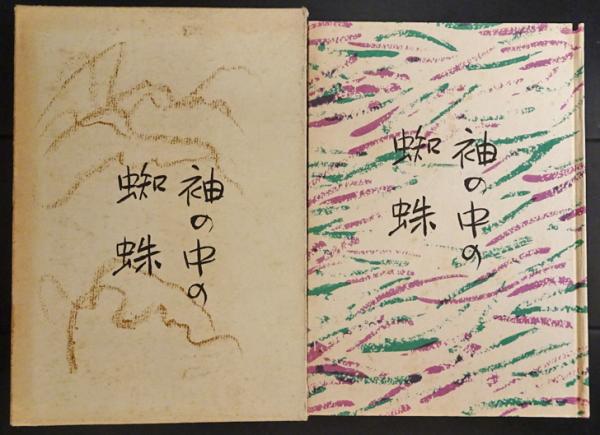 袖の中の
蜘蛛
袖の中の
蜘蛛